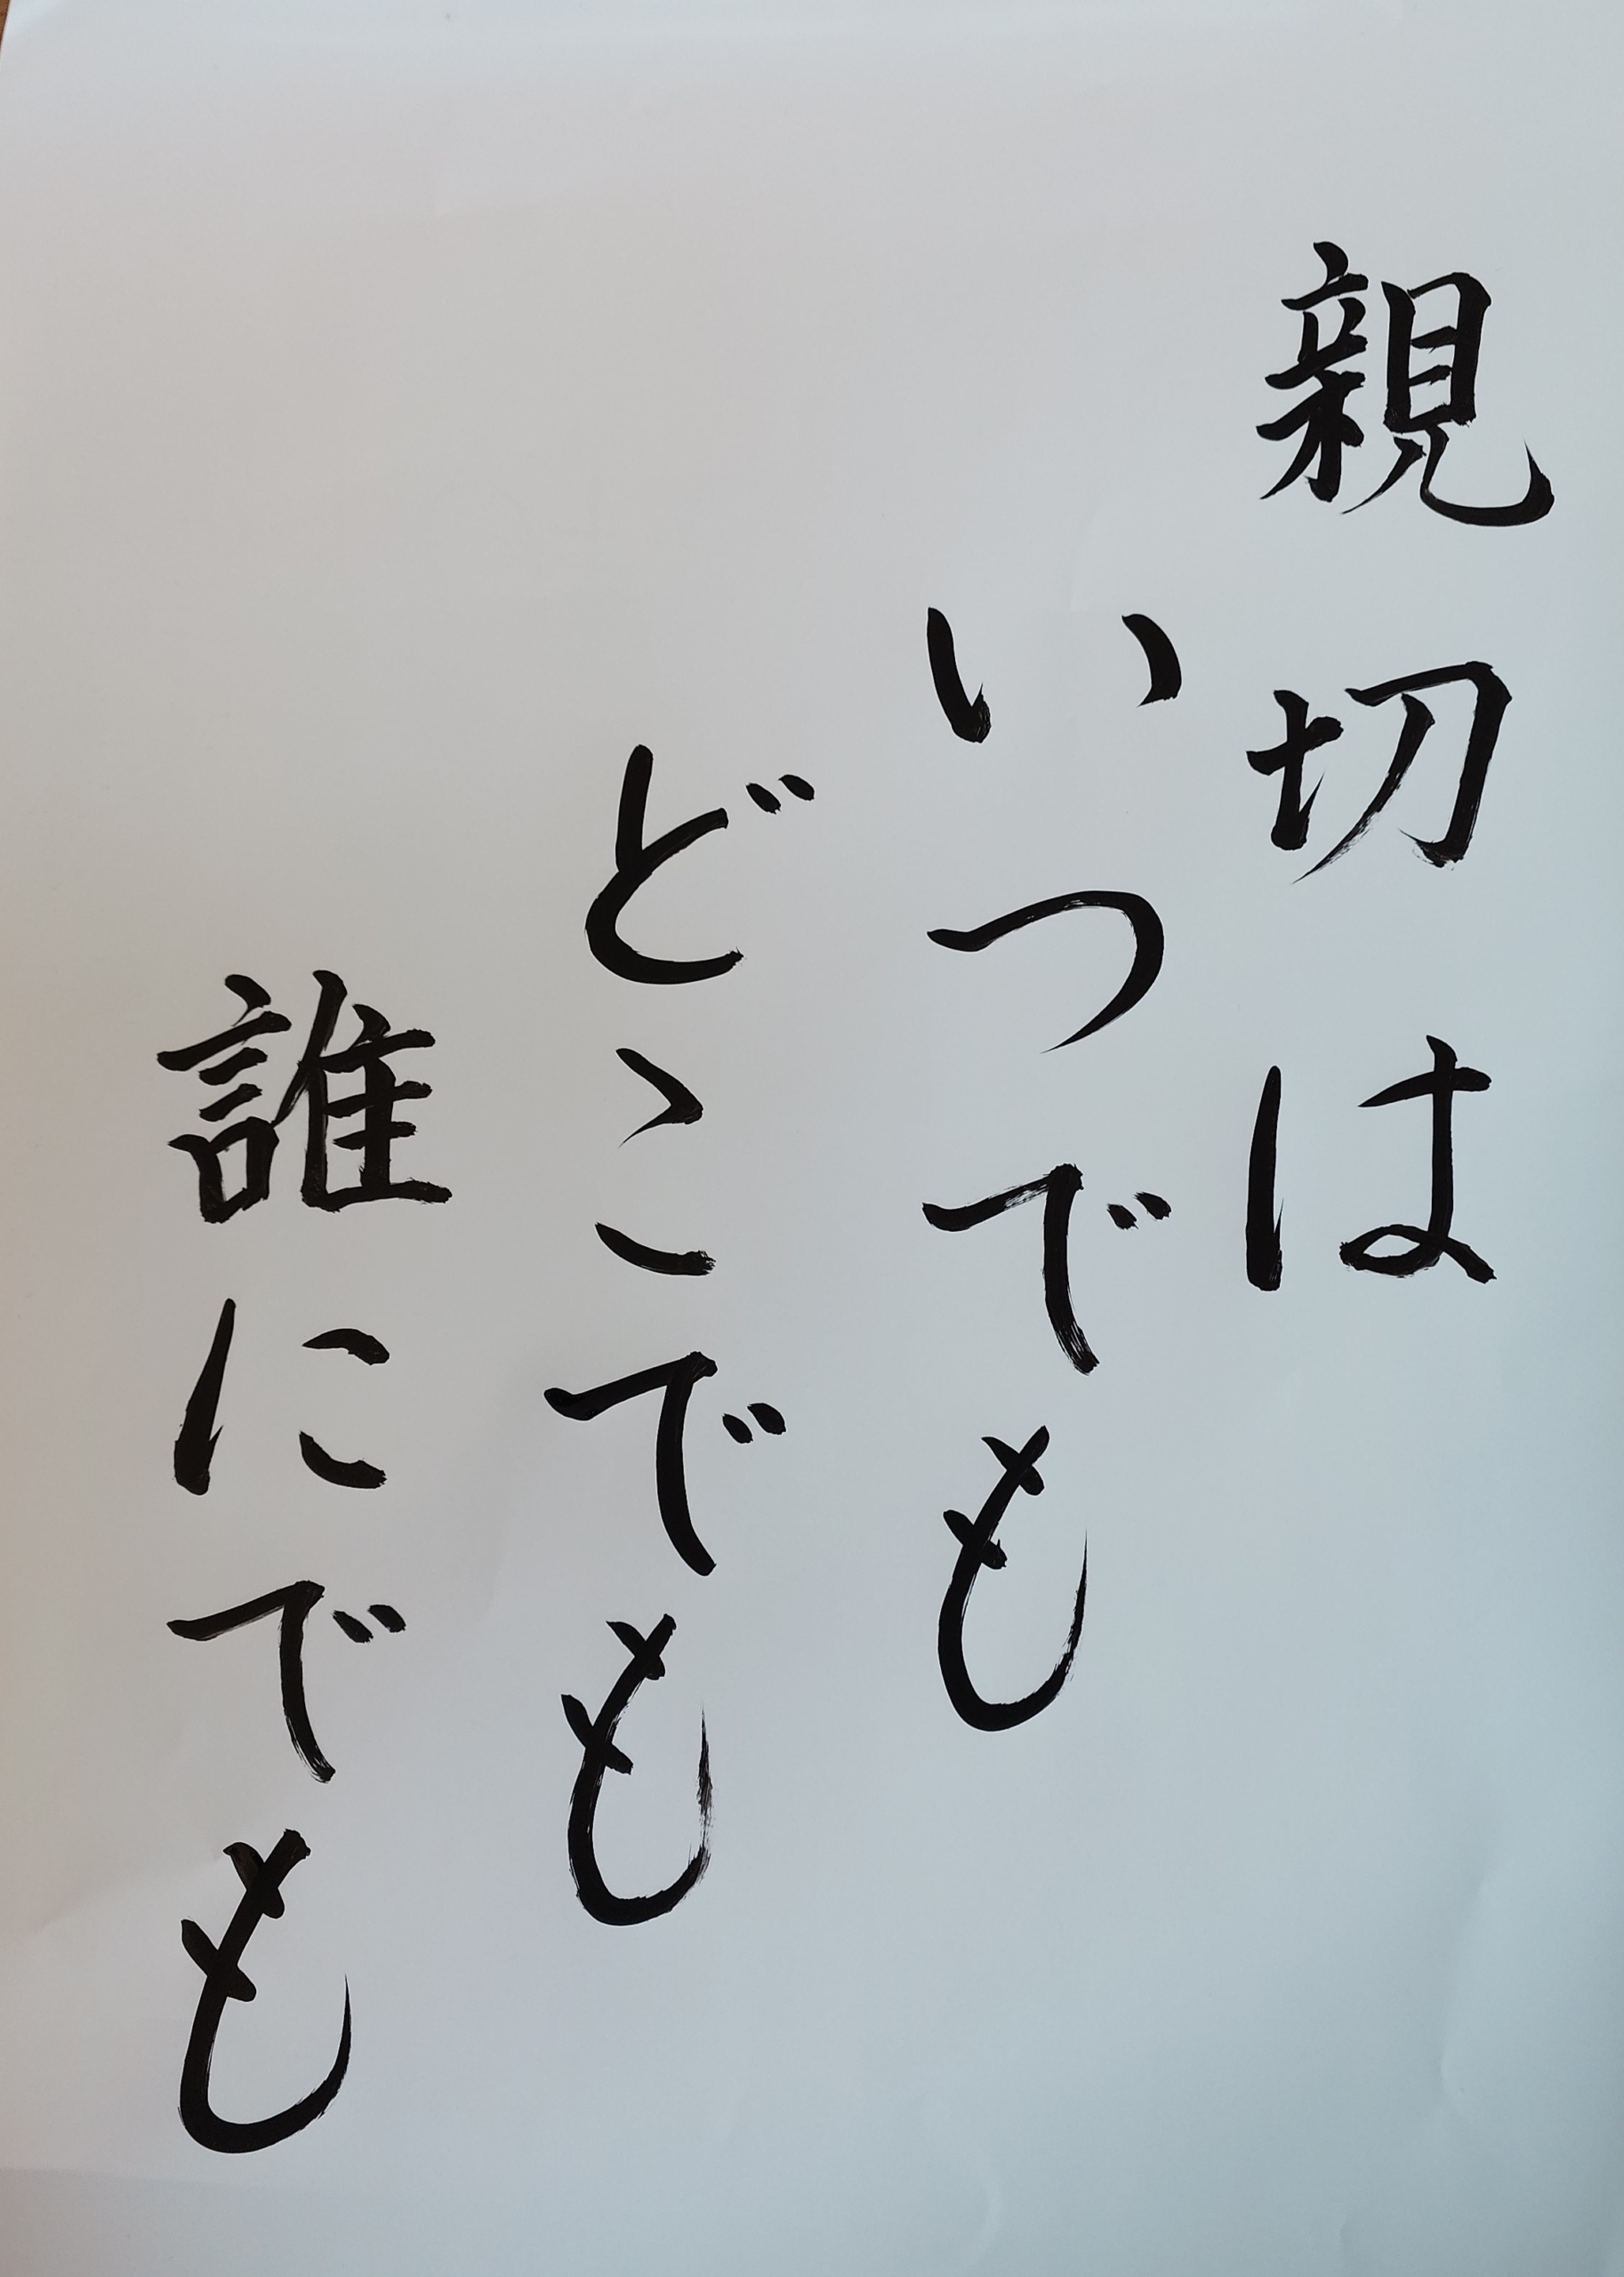 親切は
いつでも
どこでも
誰にでも